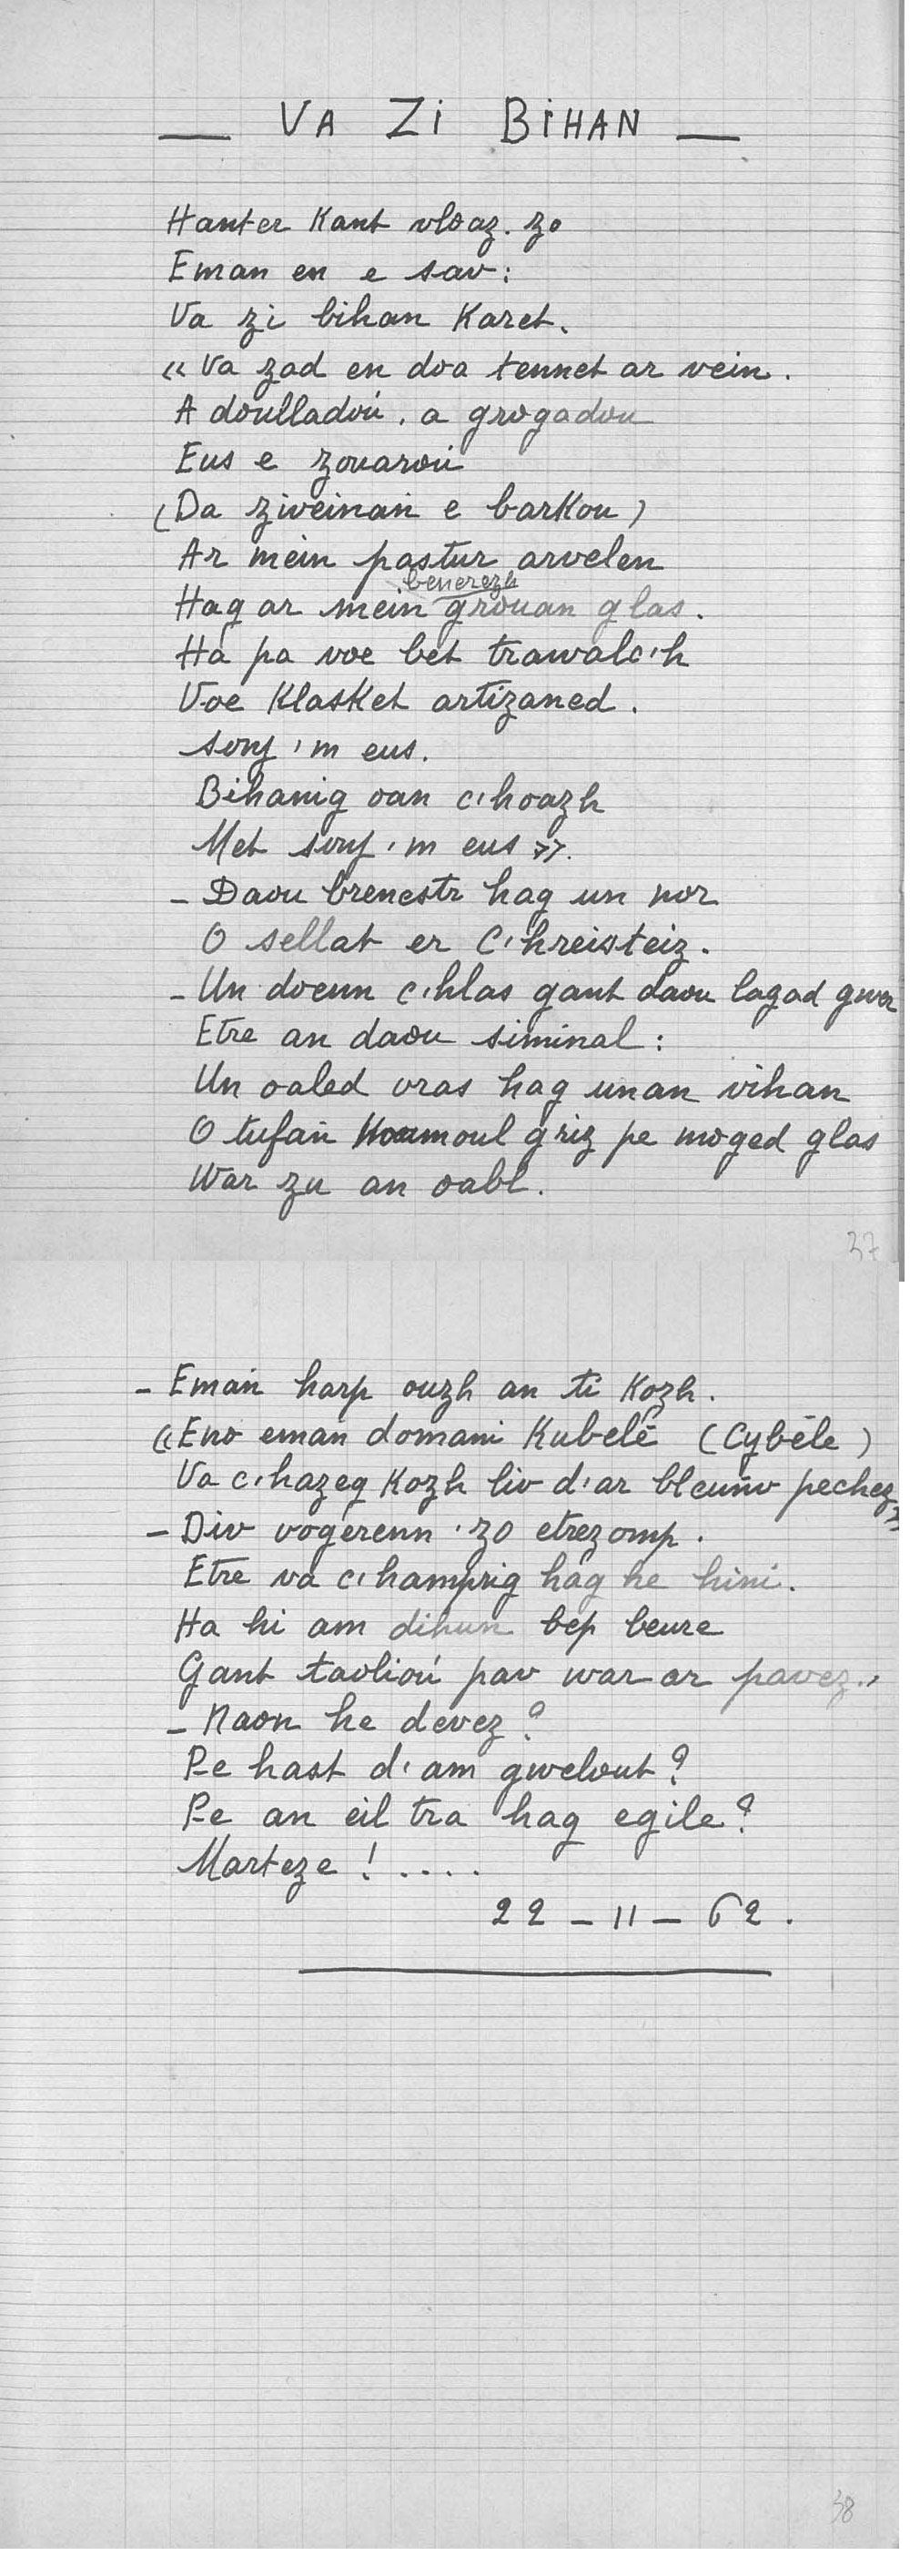 — VA ZI BIHAN —
Hanter Kant vloaz. zo
Eman en e sav :
Va zi bihan Karet.
« Va zad en doa tennet ar vein.
A doulladoú, a grogadou
Eus e zouaroú
(Da ziveinañ e barkou)
Ar mein pastur arvelen
benerezh
Hag ar mein grouan glas.
Ha pa voe bet trawalc'h
Voe Klasket artizaned.
Sonj 'm eus.
Bihanig oan c'hoazh
Met sonj 'm eus ».
- Daou brenestr hag un nor
O sellat er C'hreisteiz.
- Un doenn c'hlas gant daou lagad gwer
Etre an daou siminal :
Un oaled vras hag unan vihan
O tufañ Koumoul griz pe moged glas
War zu an oabl.
37
- Emañ harp ouzh an ti Kozh.
« Eno emañ domani Kubelé (Cybèle)
Va c'hazeg Kozh liv d'ar bleuñv pechez »
- Div vogerenn 'zo etrezomp.
Etre va c'hamprig hag he hini.
Ha hi am dihun bep beure
Gant taolioú pav war ar pavez. »
- Naon he devez ?
Pe hast d'am gwelout ?
Pe an eil tra hag egile ?
Marteze ! ....
22 - 11 - 62 .
38